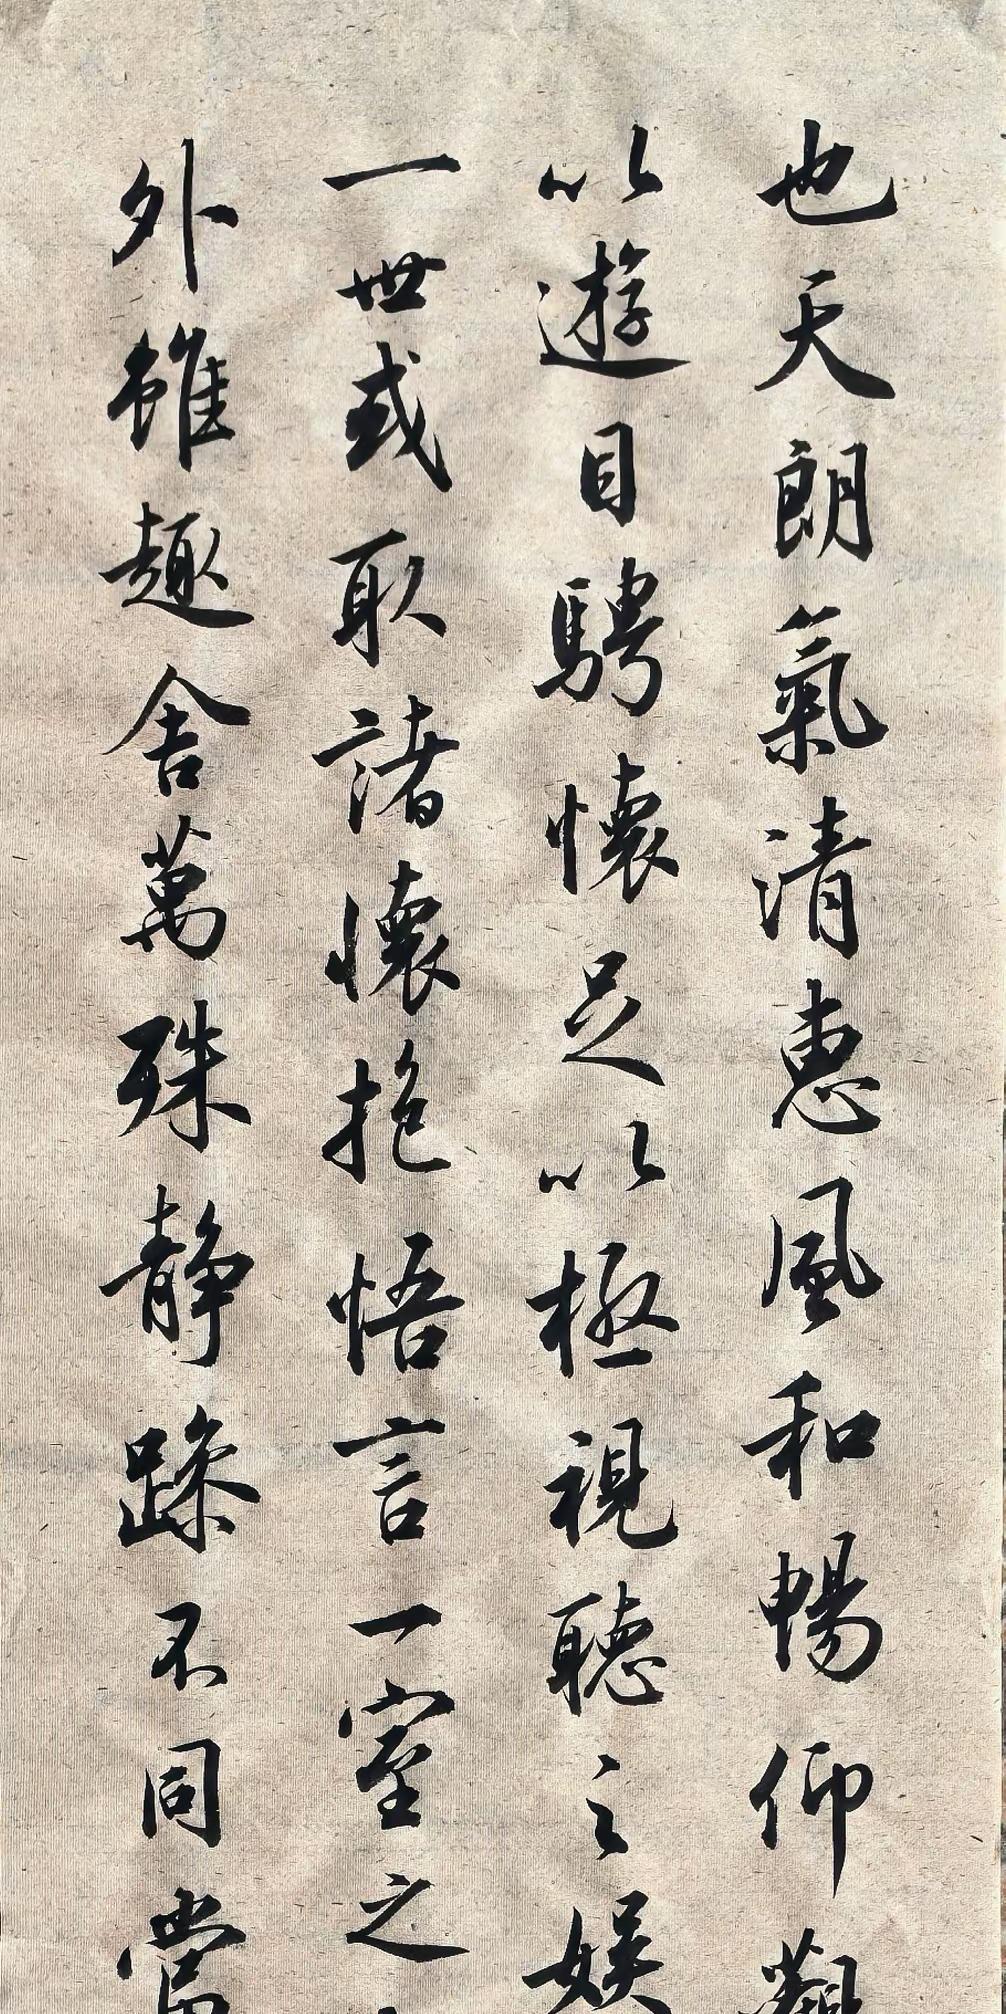 也天朗氣清惠風和暢仰觀
以遊目騁懷足以極視聽之娛
一世或取諸懷抱悟言一室之
外雖趣舍萬殊静躁不同當